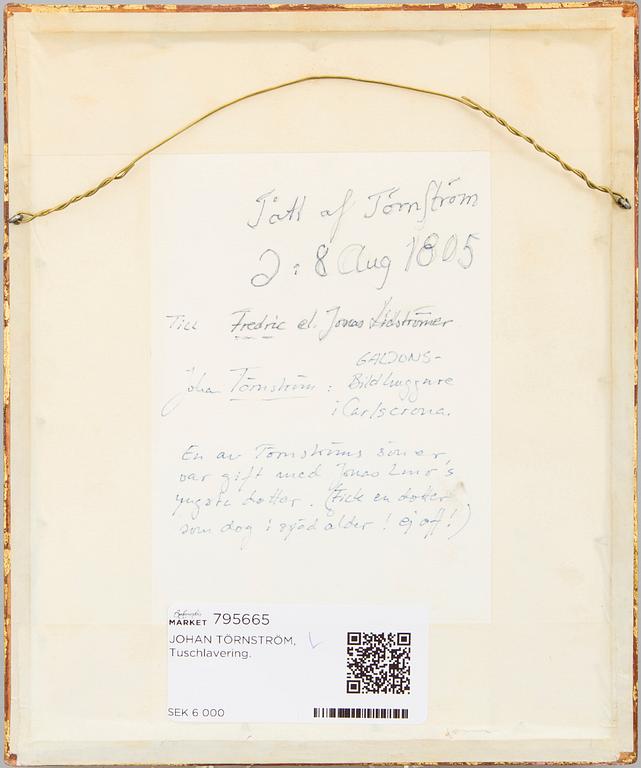 Fått af Törnström
d: 8 Aug 1805
Till Fredric el. Jonas Lidströmer
GALJONS-
Johan Törnström: Bildhuggare
i Carlscrona.
En av Törnströms söner,
var gift med Jonas Lmr's
yngsta dotter. (Fick en dotter
som dog i späd ålder! ej aff!)
Bukowskis
MARKET 795665
JOHAN TÖRNSTRÖM,
Tuschlavering.
SEK 6 000